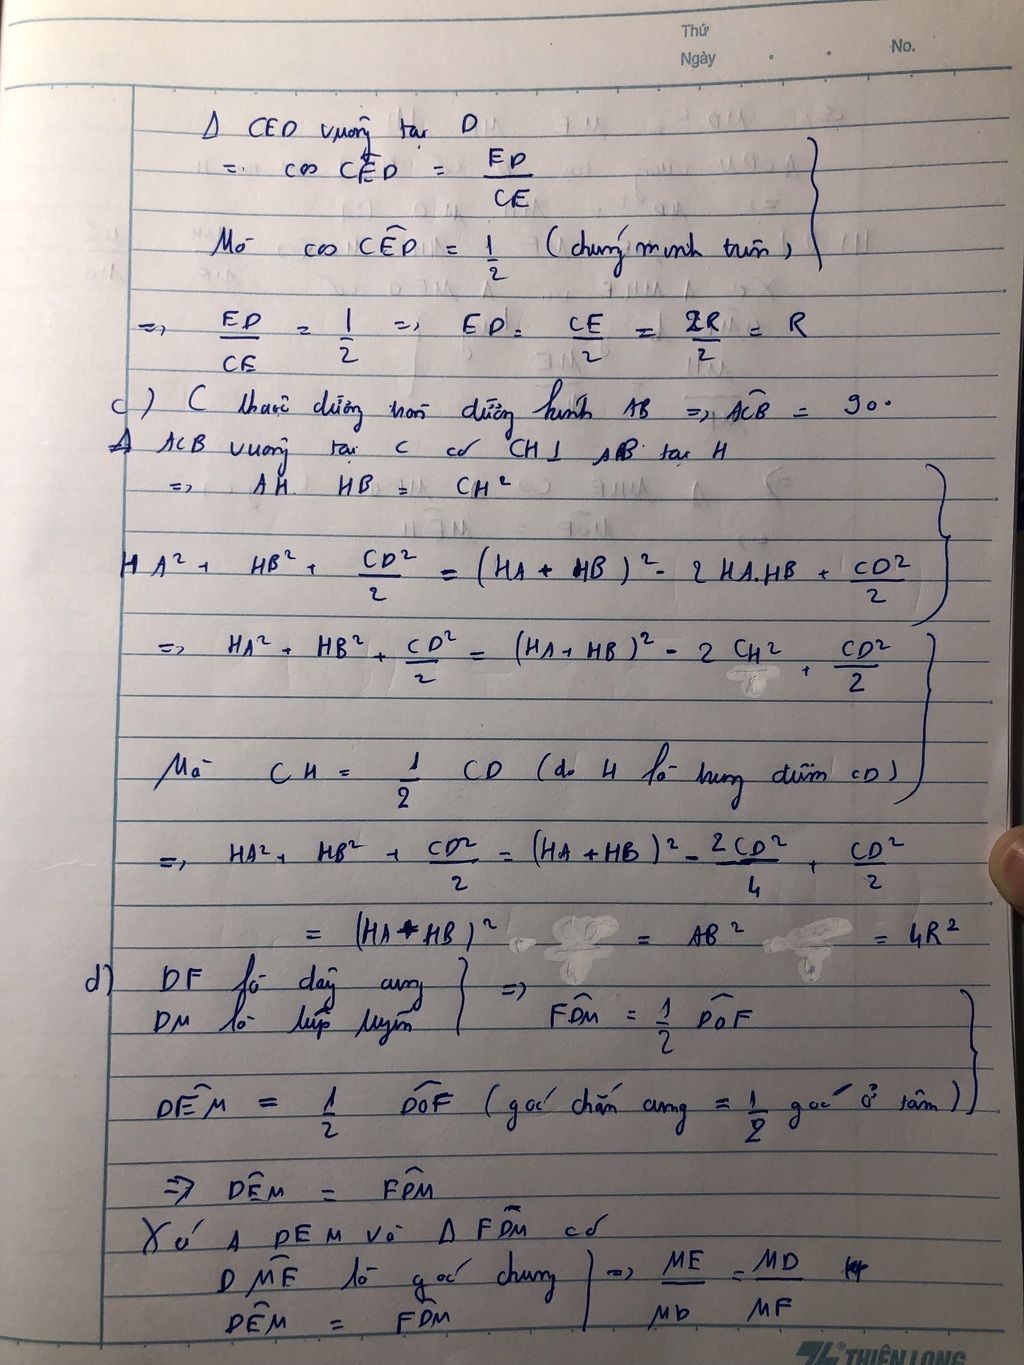 Thứ
Ngày . . No.
Δ CED vuông tại D
=> cos CÊD = ED/CE
Mà cos CÊD = 1/2 (chứng minh trên)
=> ED/CE = 1/2 => ED = CE/2 = 2R/2 = R
c) C thuộc đường tròn đường kính AB => AĈB = 90°
Δ ACB vuông tại C có CH ⊥ AB tại H
=> AH. HB = CH²
HA² + HB² + CD²/2 = (HA + HB)² - 2 HA.HB + CD²/2
=> HA² + HB² + CD²/2 = (HA + HB)² - 2 CH² + CD²/2
Mà CH = 1/2 CD (do H là trung điểm CD)
=> HA² + HB² + CD²/2 = (HA + HB)² - 2CD²/4 + CD²/2
= (HA + HB)² = AB² = 4R²
d) DF là dây cung
DM là tiếp tuyến => FD̂M = 1/2 DÔF
DÊM = 1/2 DÔF (góc chắn cung = 1/2 góc ở tâm)
=> DÊM = FD̂M
Xét Δ DEM và Δ FD̂M có
DM̂E là góc chung
DÊM = FD̂M => ME/MD = MD/MF
THIÊN LONG